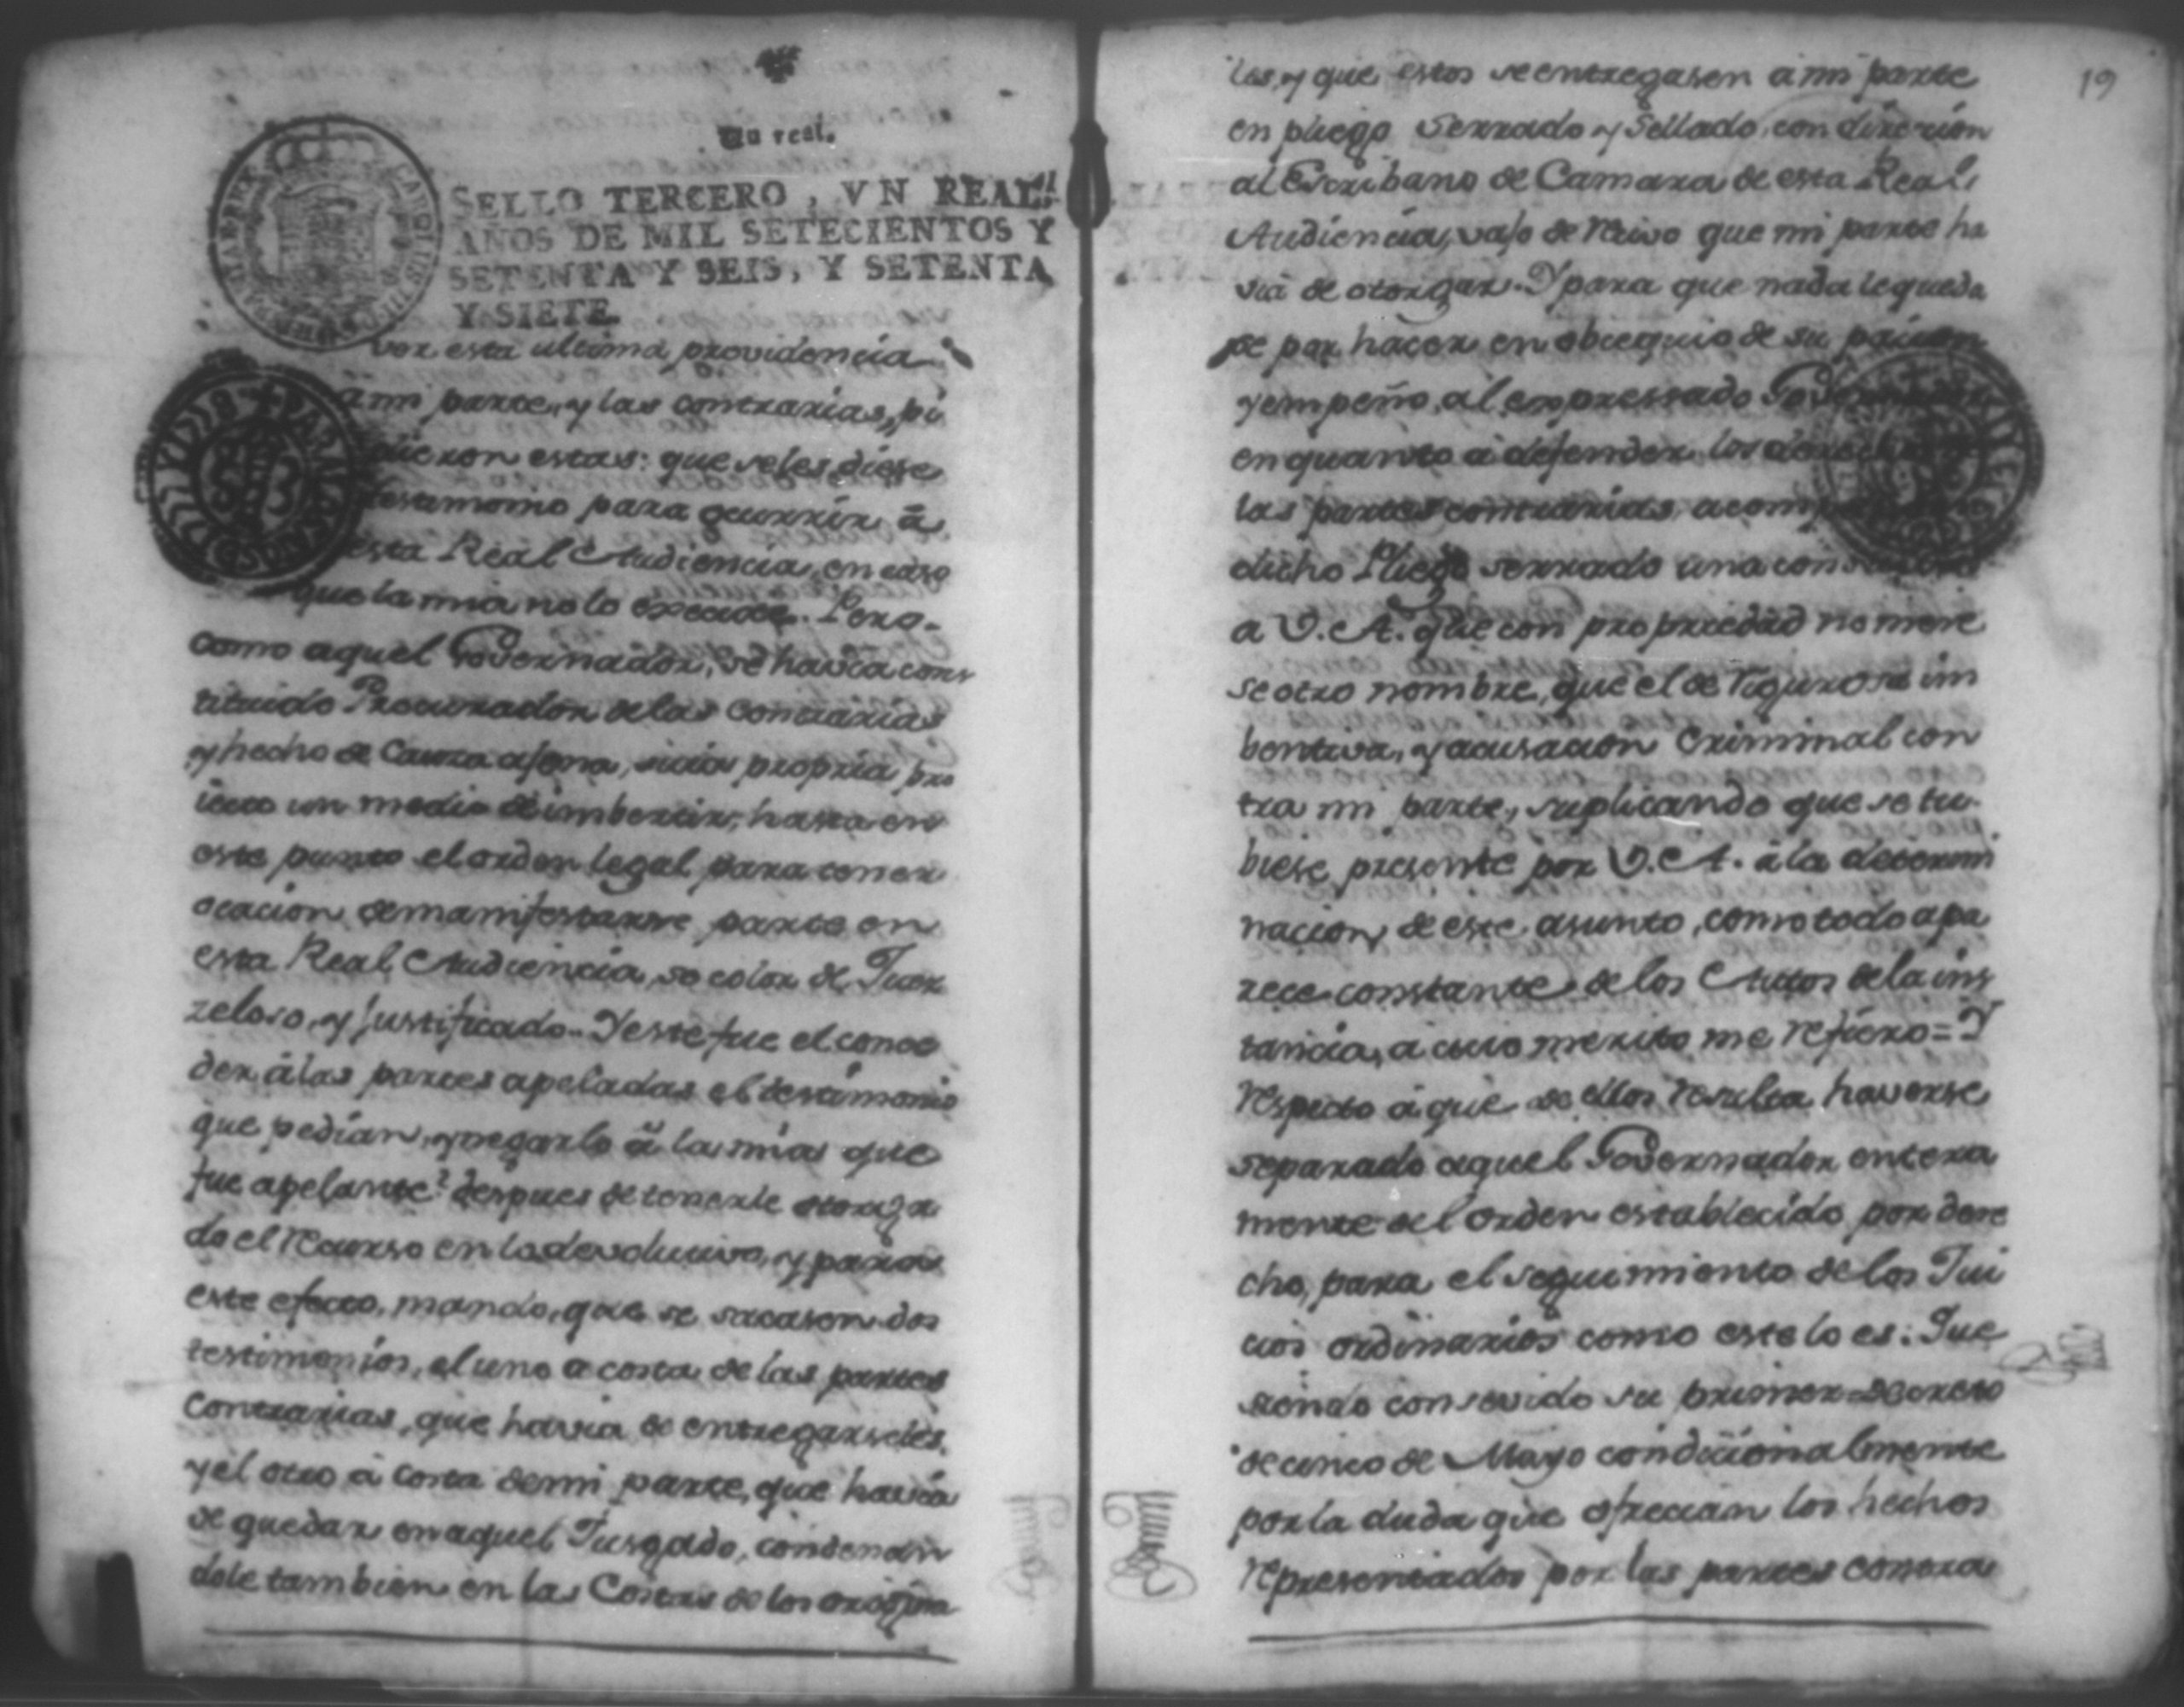 Un real.
SELLO TERCERO, VN REAL:
AÑOS DE MIL SETECIENTOS Y
SETENTA Y SEIS, Y SETENTA
Y SIETE.
esta ultima providencia
a mi parte, y las contrarias, pi
dieron estas: que se les diese
testimonio para ocurrir à
esta Real Audiencia, en caso
que la mia no lo execute. Pero
como aquel Governador, se havia cons
tituido Procurador de las Contrarias
y hecho de Causa agena, suia propria, pro
iecto un medio de imbertir, hasta en
este punto el orden legal para tener
ocacion de manifestarse parte en
esta Real Audiencia, so color de Juez
zeloso, y justificado. Y este fue el conce
der à las partes apeladas el testimonio
que pedian, y negarlo à la mia que
fue apelante? despues de tenerle otorga
do el recurso en lo devolutivo, y para
este efecto, mando, que se sacasen dos
testimonios, el uno a costa de las partes
Contrarias, que havia de entregarseles,
y el otro à costa de mi parte, que havia
de quedar en aquel Jusgado, condenan
dole tambien en las Costas de los origina
19
les, y que estos se entregasen à mi parte
en pliego Serrado y Sellado, con direcion
al Escribano de Camara de esta Real
Audiencia, vajo de recivo que mi parte ha
via de otorgar. Y para que nada le queda
se por hacer en obcequio de su pacion
y empeño, al expressado Governador
en quanto à defender los derechos
las partes contrarias,
dicho Pliego serrado una
a V. A. que con propriedad no mere
se otro nombre, que el de rigurosa im
bentiva, y acusacion Criminal con
tra mi parte, suplicando que se tu
biese presente por V. A. à la determi
nacion de este asunto, como todo apa
rece constante de los Autos de la ins
tancia, a cuio merito me refiero = Y
respecto à que de ellos resulta haverse
separado aquel Governador entera
mente del orden establecido por dere
cho, para el seguimiento de los Jui
cios ordinarios como este lo es: Que
siendo consevido su primer decreto
de cinco de Mayo condicionalmente
por la duda que ofrecian los hechos
representados por las partes contra